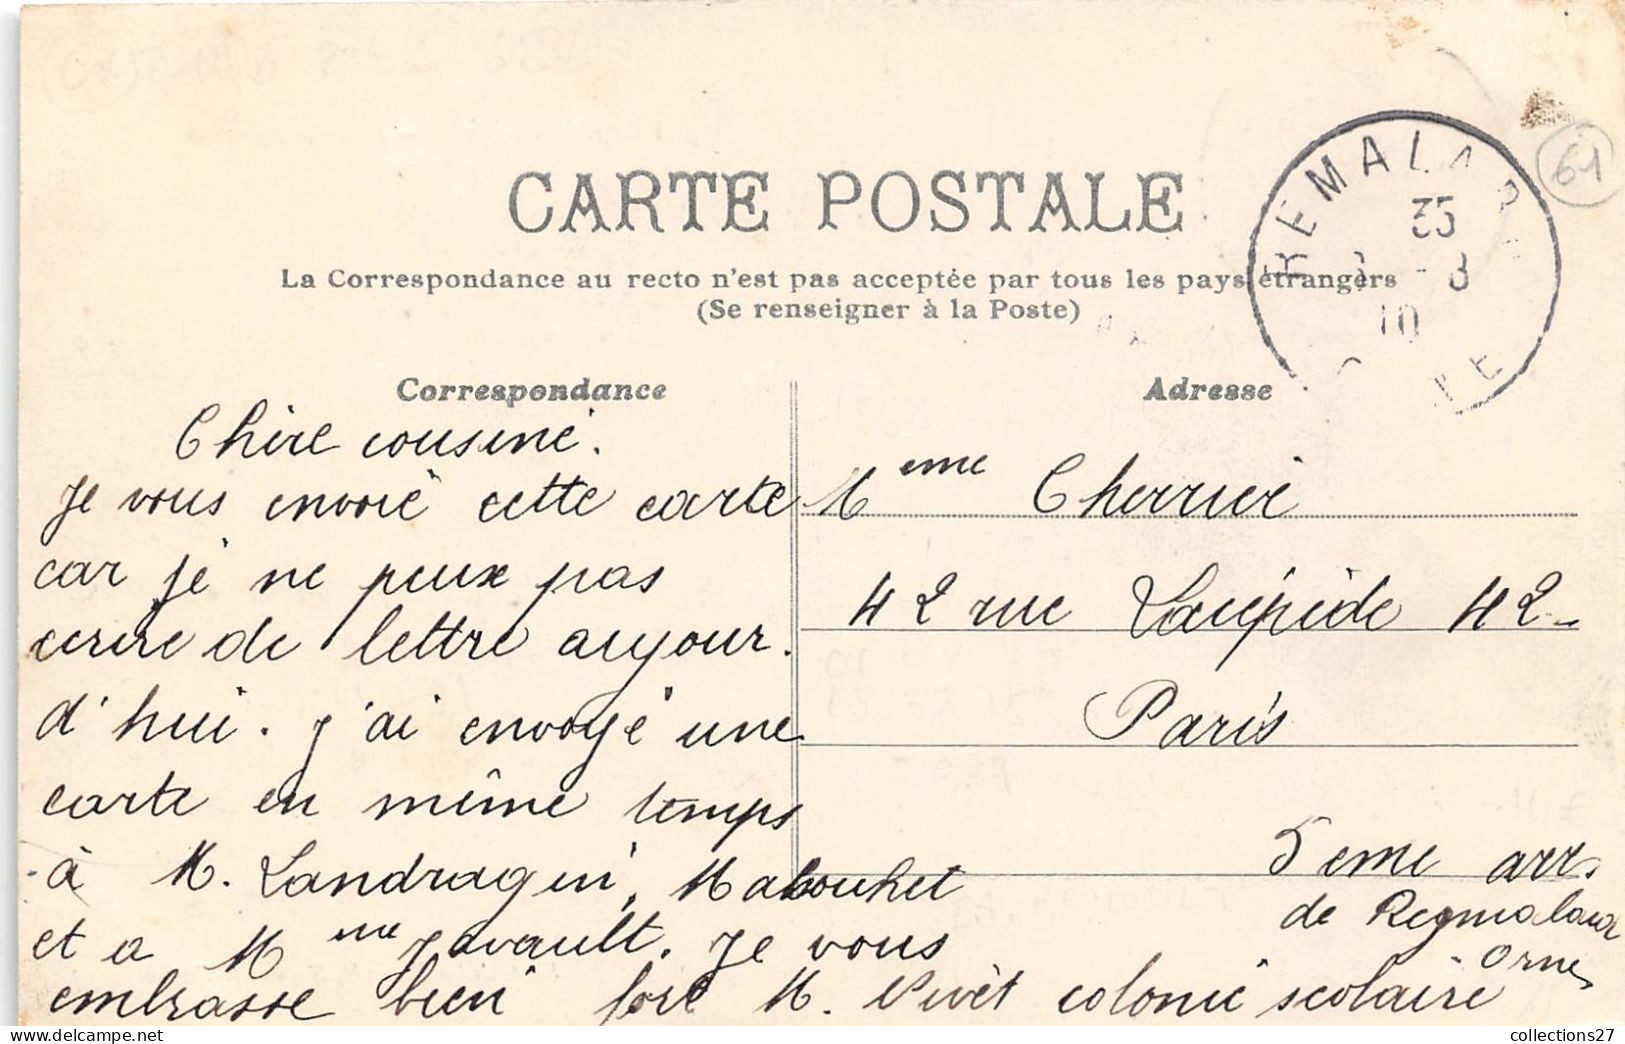 CARTE POSTALE
La Correspondance au recto n'est pas acceptée par tous les pays étrangers
(Se renseigner à la Poste)
REMALARD
35
8
10
61
Correspondance
Chère cousine.
Je vous envoie cette carte
car je ne peux pas
ecrire de lettre aujour.
d'hui. J'ai envoyé une
carte en même temps
à M. Landragin, Mabouhet
et a Mme Javault. Je vous
embrasse bien fort M. Vivèt colonie scolaire
Adresse
Meme Cherrier
42 rue Lacépède 42
Paris
5eme arr.
de Regmalard
Orne
collections27